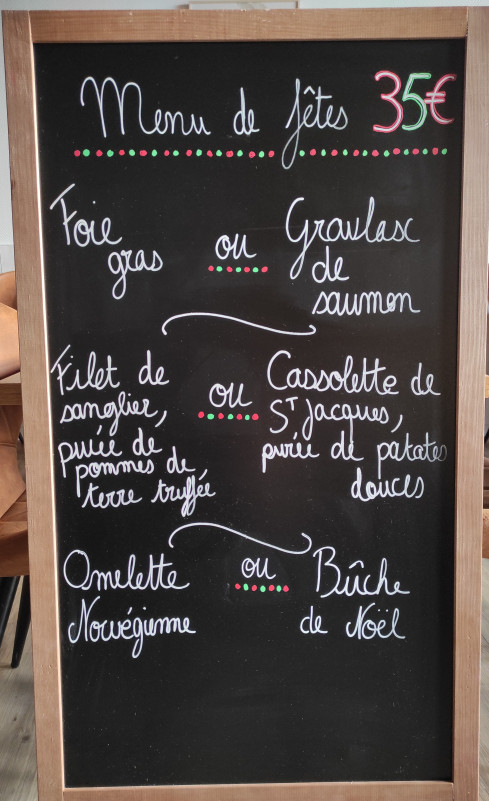 Menu de fêtes 35€
Foie
gras
ou
Gravlax
de
saumon
Filet de
sanglier,
purée de
pommes de
terre truffée
ou
Cassolette de
ST Jacques,
purée de patates
douces
Omelette
Norvégienne
ou
Bûche
de Noël